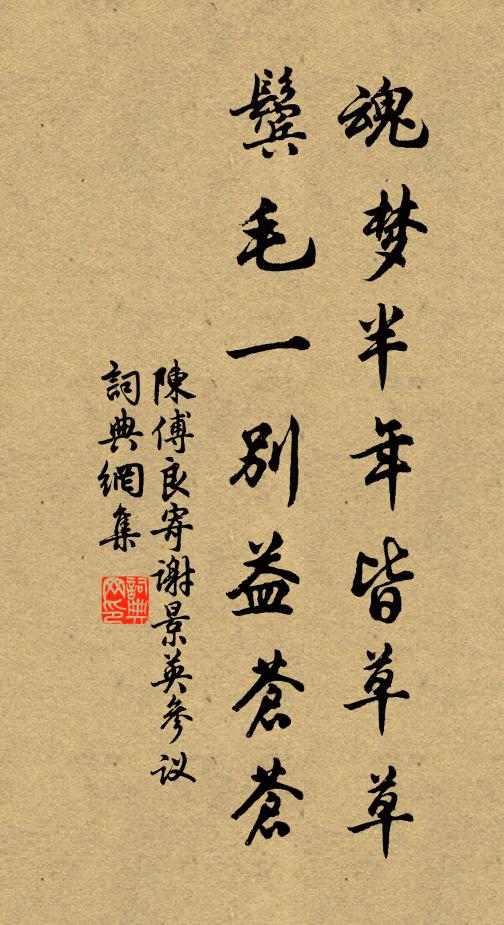 魂梦半年皆草草
鬓毛一别益苍苍
陳傅良寄谢景英參议
詞典網集
詞典网印